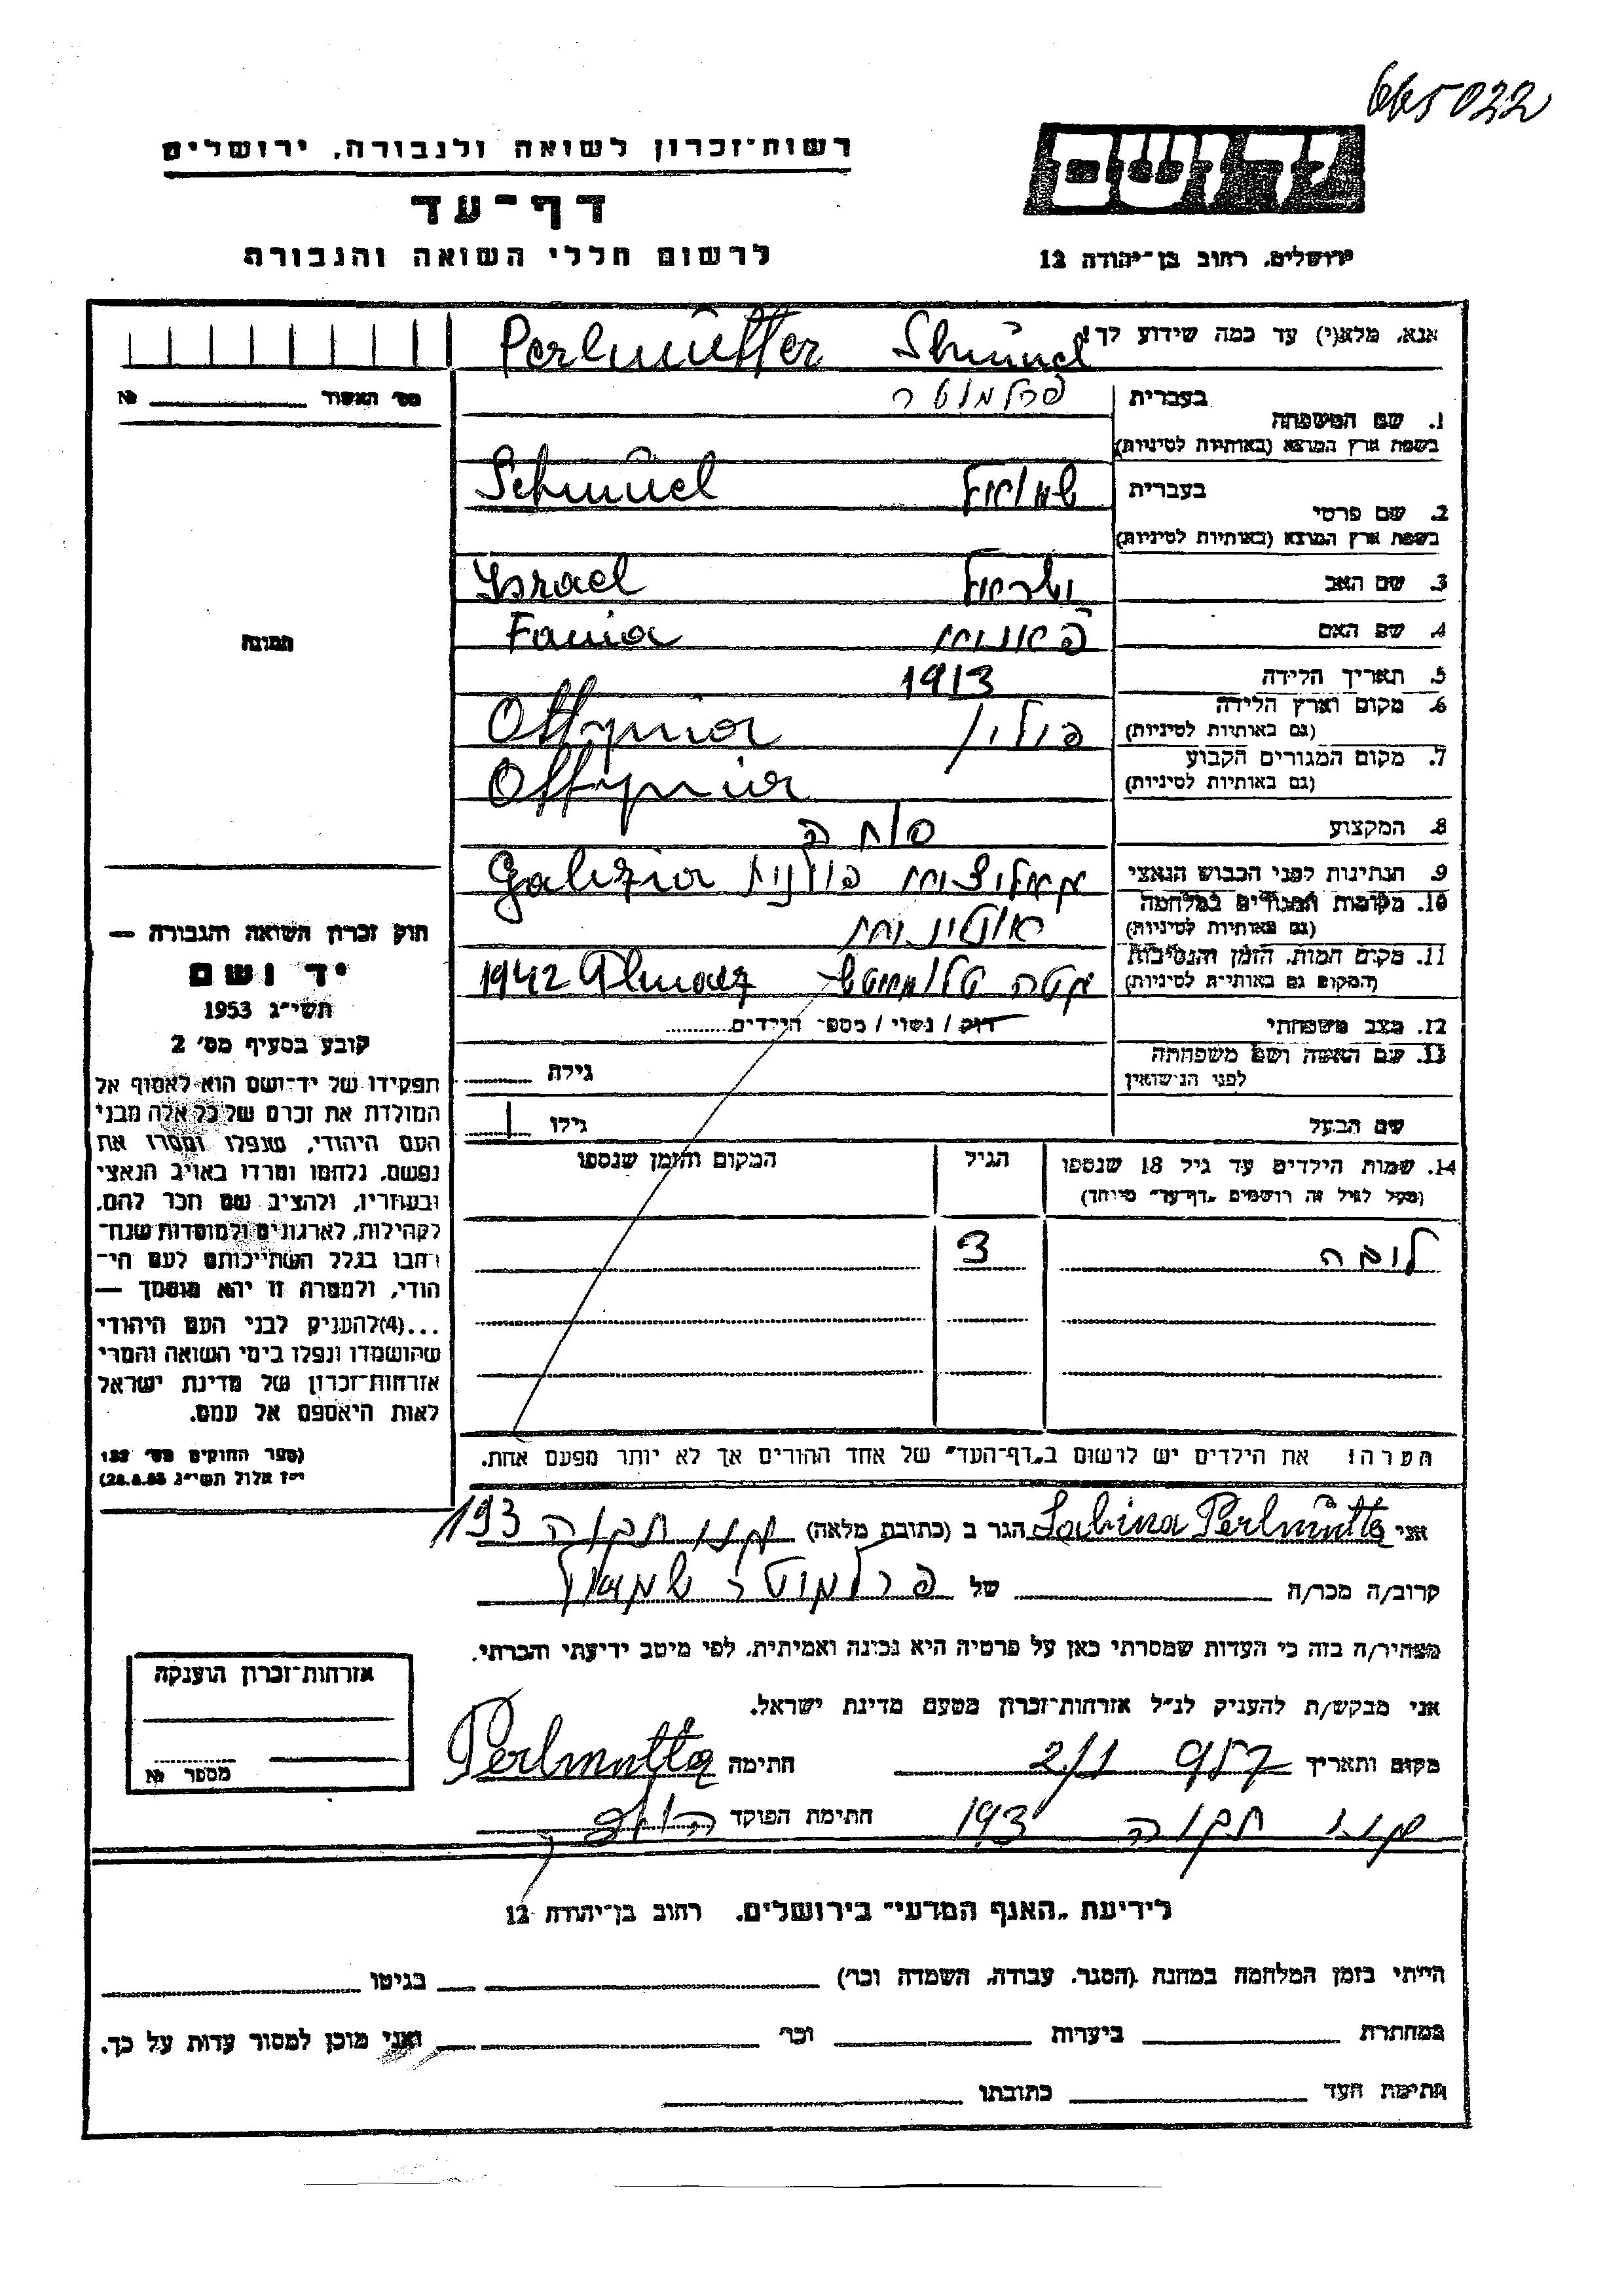 665022
רשות־זכרון לשואה ולגבורה, ירושלים
דף־עד
לרשום חללי השואה והגבורה
יד ושם
ירושלים, רחוב בן־יהודה 12
אנא, מלא(י) עד כמה שידוע לך!
Perlmütter Shmuel
מס׳ האשור №
1. שם המשפחה
בעברית פרלמוטר
בשפת ארץ המוצא (באותיות לטיניות)
2. שם פרטי
בעברית שמואל Schmuel
בשפת ארץ המוצא (באותיות לטיניות)
3. שם האב ישראל Israel
4. שם האם פאניה Fania
תמונה
5. תאריך הלידה 1913
6. מקום וארץ הלידה פולין Ottynia
(גם באותיות לטיניות)
7. מקום המגורים הקבוע Ottynia
(גם באותיות לטיניות)
8. המקצוע סוחר
9. הנתינות לפני הכבוש הנאצי גאליציה פולנית Galizia
10. מקומות המגורים במלחמה
(גם באותיות לטיניות) אוטיניה
11. מקום המות, הזמן והנסיבות
(המקום גם באותיות לטיניות) 1942
12. מצב משפחתי רווק / נשוי / מספר הילדים
13. שם האשה ושם משפחתה
לפני הנישואין גילה
שם הבעל גילו
14. שמות הילדים עד גיל 18 שנספו הגיל המקום והזמן שנספו
(מעל לגיל זה רושמים „דף־עד״ מיוחד)
לובה 3
הערה: את הילדים יש לרשום ב„דף־העד״ של אחד ההורים אך לא יותר מפעם אחת.
חוק זכרון השואה והגבורה —
יד ושם
תשי״ג 1953
קובע בסעיף מס׳ 2
תפקידו של יד־ושם הוא לאסוף אל
המולדת את זכרם של כל אלה מבני
העם היהודי, שנפלו ומסרו את
נפשם, נלחמו ומרדו באויב הנאצי
ובעוזריו, ולהציב שם וזכר להם,
לקהילות, לארגונים ולמוסדות שנח־
רבו בגלל השתייכותם לעם הי־
הודי, ולמטרה זו יהא מוסמך —
...(4)להעניק לבני העם היהודי
שהושמדו ונפלו בימי השואה והמרי
אזרחות־זכרון של מדינת ישראל
לאות היאספם אל עמם.
(ספר החוקים מס׳ 132
י״ז אלול תשי״ג 28.8.53)
אני Sabina Perlmütter הגר ב (כתובת מלאה) תקוה 193
קרוב/ה מכר/ה של פרלמוטר שמואל
מצהיר/ה בזה כי העדות שמסרתי כאן על פרטיה היא נכונה ואמיתית, לפי מיטב ידיעתי והכרתי.
אני מבקש/ת להעניק לנ״ל אזרחות־זכרון מטעם מדינת ישראל.
מקום ותאריך 2/1 957 חתימה Perlmutter
תקוה 193 חתימת הפוקד
אזרחות־זכרון הוענקה
מספר №
לידיעת „האגף המדעי״ בירושלים, רחוב בן־יהודה 12
הייתי בזמן המלחמה במחנה (הסגר, עבודה, השמדה וכו׳) בגיטו
במחתרת ביערות וכו׳ ואני מוכן למסור עדות על כך.
חתימת העד כתובתו